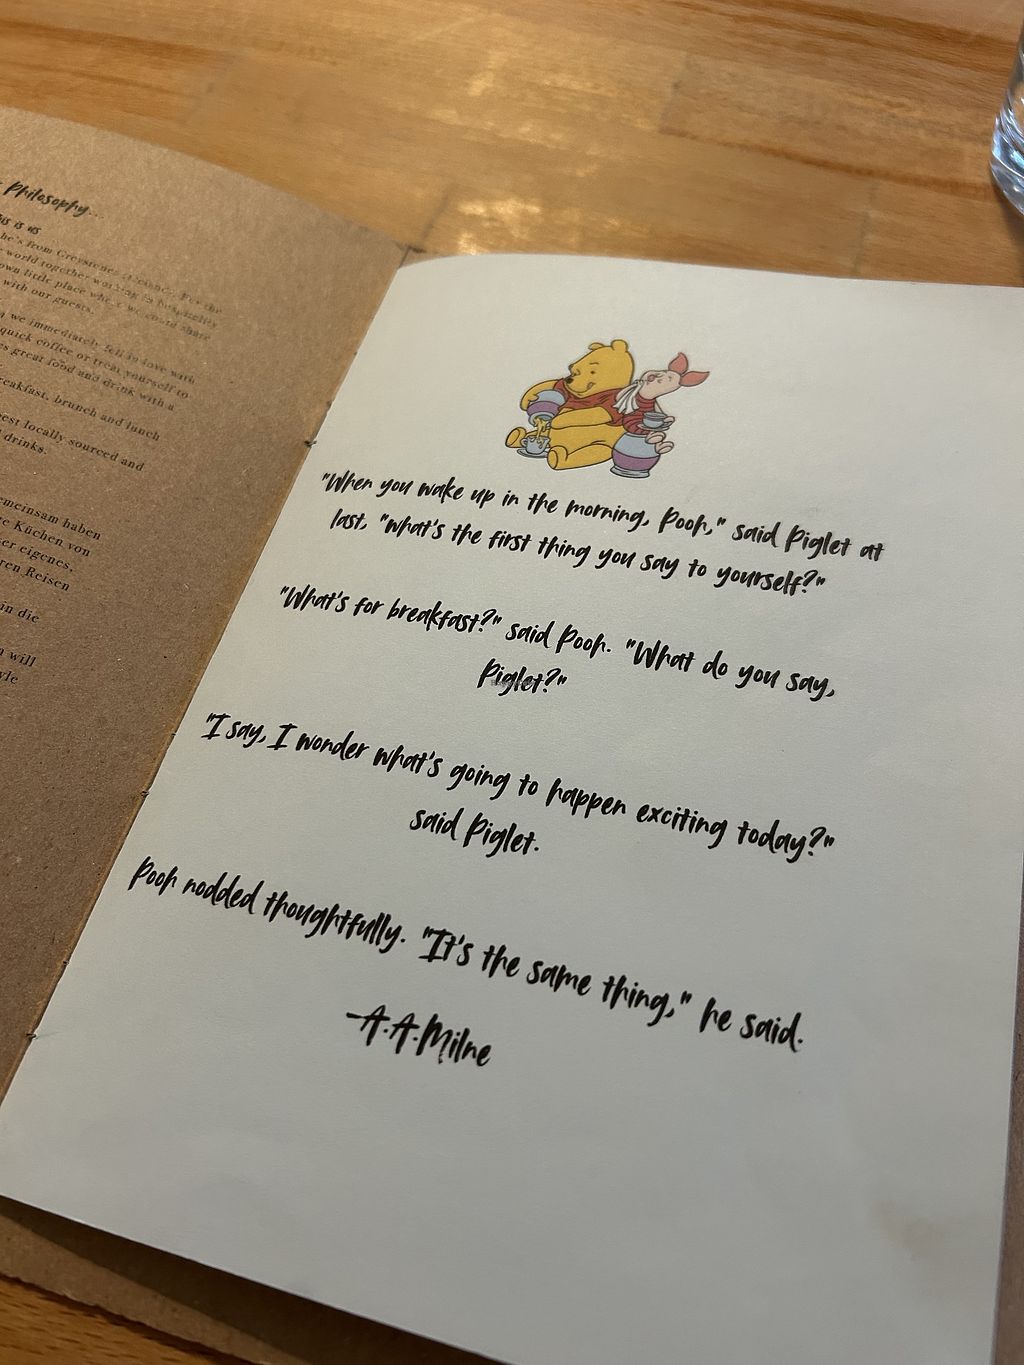 Philosophy...
is is us
he's from Greystones
world together working in hospitality
own little place where we could share
with our guests.
we immediately fell in love with
quick coffee or treat yourself to
great food and drink with a
breakfast, brunch and lunch
best locally sourced and
drinks.
gemeinsam haben
Küchen von
eigenes,
Reisen
in die
will
"When you wake up in the morning, Pooh," said Piglet at
last, "what's the first thing you say to yourself?"
"What's for breakfast?" said Pooh. "What do you say,
Piglet?"
"I say, I wonder what's going to happen exciting today?"
said Piglet.
Pooh nodded thoughtfully. "It's the same thing," he said.
-A.A.Milne